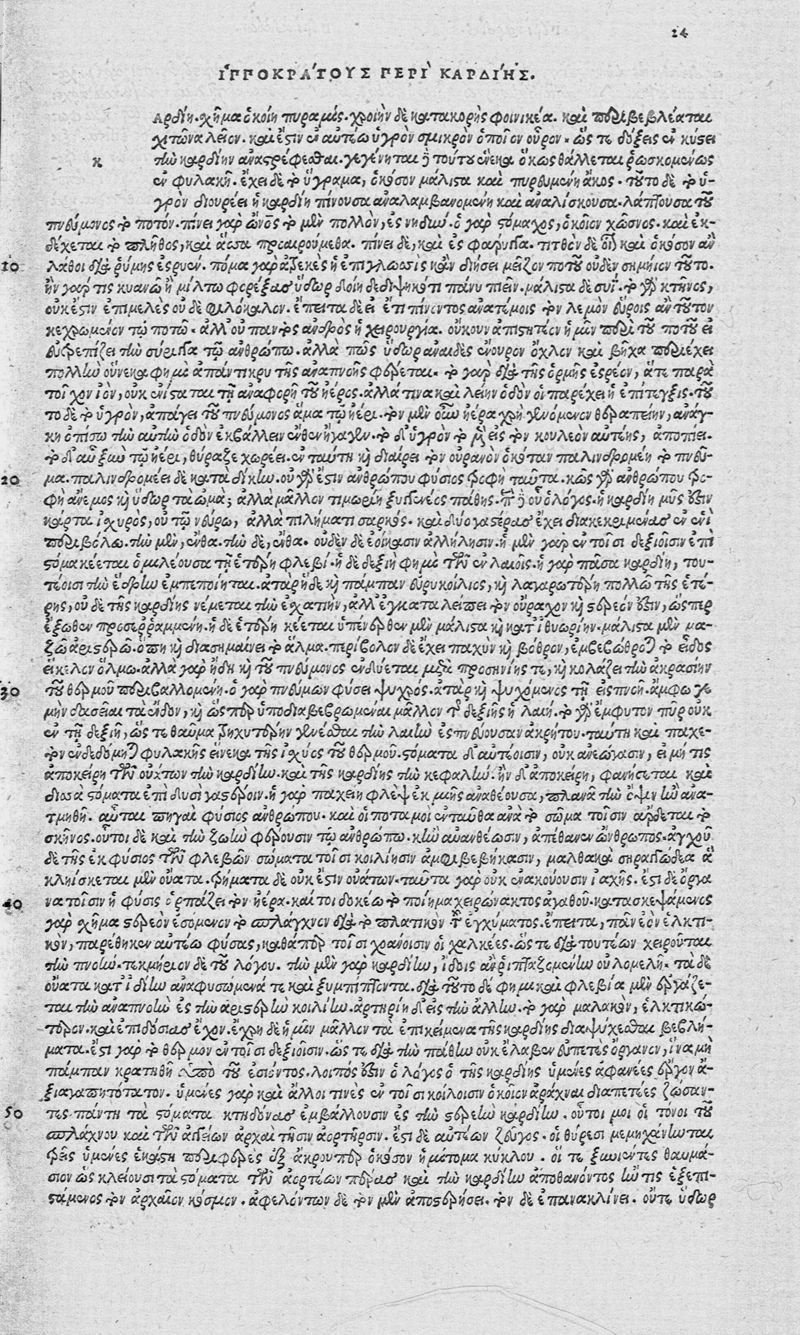 24
ἹΠΠΟΚΡΑΤΟΥΣ ΠΕΡῚ ΚΑΡΔΊΗΣ.
αρδίη. χῆμα ὁκοίη πυραμίς. χροιὴν δὲ κατακορὴς φοινικέα. καὶ περιβεβλέαται
χιτῶνα λεῖον. καὶ ἔστιν ἐν αὐτέῳ ὑγρὸν σμικρὸν ὁποῖον οὖρον. ὥς τε δόξεις ἐν κύσει
κ τὴν καρδίην ἀναστρέφεσθαι. γεγένηται δὲ τούτου ἕνεκα ὅκως θάλλεται ῥωσκομένως
ἐν φυλακῇ. ἔχει δὲ τὸ ὕγρασμα, ὁκόσον μάλιστα καὶ πυρευμένῃ ἄκος. τοῦτο δὲ τὸ ὑ-
γρὸν διουρέει ἡ καρδίη πίνουσα ἀναλαμβανομένη καὶ ἀναλίσκουσα. λάπτουσα τοῦ
πνεύμονος τὸ ποτόν. πίνει γὰρ ἄνθρωπος τὸ μὲν πολλὸν, ἐς νηδύν. ὁ γὰρ στόμαχος, ὁκοῖον χῶνος. καὶ ἐκ-
δέχεται τὸ πλῆθος, καὶ ἅσσα προαιρούμεθα. πίνει δὲ, καὶ ἐς φάρυγγα. τιτθὸν δὲ οἷον καὶ ὁκόσον ἂν
10 λάθοι διὰ ῥύμης ἐσρυέν. πῶμα γὰρ ἀτρεκὲς ἡ ἐπιγλωσσὶς κἂν διήσει μεῖζον ποτοῦ οὐδὲν σημήιον τοῦτο.
ἢν γάρ τις κυανῷ ἢ μίλτῳ φορέξας ὕδωρ δοίη δεδιψηκότι πάνυ πιεῖν. μάλιστα δὲ συΐ. τὸ γὰρ κτῆνος,
οὐκ ἔστιν ἐπιμελὲς οὐδὲ φιλόκαλον. ἔπειτα δὲ εἰ ἔτι πίνοντος ἀνατέμοις τὸν λεμὸν εὕροις ἂν τοῦτον
κεχρωσμένον τῷ ποτῷ. ἀλλ' οὐ παντὸς ἀνδρὸς ἡ χειρουργία. οὔκουν ἀπιστητέον ἡμῖν περὶ τοῦ ποτοῦ εἰ
εὐτρεπίζει τὴν σύριγγα τῷ ἀνθρώπῳ. ἀλλὰ πῶς ὕδωρ ἀναιδὲς ἐνοῦρον ὄχλον καὶ βῆχα παρέχει
πολλὴν οὕνεκα φημὶ ἀπαντικρυ τῆς ἀναπνοῆς φέρεται. τὸ γὰρ διὰ τῆς ὁρμῆς ἐσρέον, ἅτε παρὰ
τοῖχον ἰὸν, οὐκ ἐνίσταται τῇ ἀναφορῇ τοῦ ἠέρος. ἀλλά τινα καὶ λείην ὁδὸν οἱ παρέχει ἡ ἐπίτεγξις. τοῦ
το δὲ τὸ ὑγρὸν, ἀπάγει τοῦ πνεύμονος ἅμα τῷ ἠέρι. τὸν μὲν οὖν ἠέρα χρὴ γενόμενον θεραπείην, ἀνάγ-
κη ὀπίσω τὴν αὐτὴν ὁδὸν ἐκβάλλειν ἔνθεν ἤγαγεν. τὸ δ' ὑγρὸν τὸ μὲν εἰς τὸν κουλεὸν αὐτέης, ἀποπτύει.
τὸ δ' αὖ ξὺν τῷ ἠέρι, θύραζε χωρέει. ἐν ταύτῃ καὶ διαίρει τὸν οὐρανὸν ὁκόταν παλινδρομέῃ τὸ πνεῦ-
20 μα. παλινδρομέει δὲ κατὰ δίκην. οὐ γάρ ἐστιν ἀνθρώπου φύσιος τροφὴ ταῦτα. κῶς γὰρ ἀνθρώπου τρο-
φὴ ἄνεμος καὶ ὕδωρ τὰ ὠμά; ἀλλὰ μᾶλλον τιμωρίη ξυγγενέος πάθης. περὶ δὲ οὗ ὁ λόγος, ἡ καρδίη μῦς ἐστιν
κάρτα ἰσχυρὸς, οὐ τῷ νεύρῳ, ἀλλὰ πιλήματι σαρκός. καὶ δύο γαστέρας ἔχει διακεκριμένας ἐν ἑνὶ
περιβόλῳ. τὴν μὲν, ἔνθα. τὴν δὲ, ἔνθα. οὐδὲν δὲ ἐοίκασιν ἀλλήλησιν. ἡ μὲν γὰρ ἐν τοῖσι δεξιοῖσιν ἐπὶ
στόμα κέεται ὁμιλέουσα τῇ ἑτέρῃ φλεβί. ἡ δὲ δεξιὴ φημὶ τῶν ἐν λαιοῖς. ἡ γὰρ πᾶσα καρδίη, του-
τέοισι τὴν ἕδρην ἐμπεποίηται. ἀτὰρ ἥδε καὶ πάμπαν εὐρυκοίλιος, καὶ λαγαρωτέρη πολλῷ τῆς ἑτέ-
ρης, οὐδὲ τῆς καρδίης νέμεται τὴν ἐσχατιὴν, ἀλλ' ἐγκαταλείπει τὸν οὐραχὸν καὶ στερεόν ἐστιν, ὥσπερ
ἔξωθεν προσερραμμένη. ἡ δὲ ἑτέρη κέεται ὑπένερθεν μὲν μάλιστα καὶ κατ' ἰθυωρίην. μάλιστα μὲν μα-
ζῷ ἀριστερῷ. ὅπη καὶ διασημαίνει τὸ ἅλμα. περίβολον δὲ ἔχει παχὺν καὶ βόθρον, ἐμβεβόθρωται τὸ εἶδος
εἴκελον ὅλμῳ. ἀλλὰ γὰρ ἤδη καὶ τοῦ πνεύμονος ἐνδύεται μετὰ προσηνίης τε, καὶ κολάζει τὴν ἀκρασίην
30 τοῦ θερμοῦ περιβαλλομένη. ὁ γὰρ πνεύμων φύσει ψυχρός. ἀτὰρ καὶ ψυχόμενος τῇ εἰσπνοῇ. ἄμφω γε
μὴν δασεῖαι τὰ ἔνδον, καὶ ὥσπερ ὑποδιαβεβρωμέναι μᾶλλον τῆς δεξιῆς ἡ λαιή. τὸ γὰρ ἔμφυτον πῦρ οὐκ
ἐν τῇ δεξιῇ, ὥς τε θαῦμα τρηχυτέρην γενέσθαι τὴν λαιὴν ἐσπνέουσαν ἀκρήτου. ταύτῃ καὶ παχε-
τὸν ἐνδεδόμηται φυλακῆς εἵνεκα τῆς ἰσχύος τοῦ θερμοῦ. στόματα δ' αὐτέοισιν, οὐκ ἀνεώγασιν, εἰ μή τις
ἀποκείρῃ τῶν οὐάτων τὴν καρδίην. καὶ τῆς καρδίης τὴν κεφαλήν. ἢν δ' ἀποκείρῃ, φανήσεται καὶ
δισσὰ στόματα ἐπὶ δυσὶ γαστέροιν. ἡ γὰρ παχείη φλὲψ ἐκ μιῆς ἀναθέουσα, πλανᾷ τὴν ὄψιν ἢν ἀνα-
τμηθῇ. αὗται πηγαὶ φύσιος ἀνθρώπου. καὶ οἱ ποταμοὶ ἐνταῦθα ἀνὰ τὸ σῶμα τοῖσιν ἄρδεται τὸ
σκῆνος. οὗτοι δὲ καὶ τὴν ζωὴν φέρουσιν τῷ ἀνθρώπῳ. κἢν αὐανθέωσιν, ἀπέθανεν ὥνθρωπος. ἀγχοῦ
δὲ τῆς ἐκφύσιος τῶν φλεβῶν σώματα τοῖσι κοιλίησιν ἀμφιβεβήκασιν, μαλθακὰ σηραγγώδεα ἃ
κληίσκεται μὲν οὔατα. τρήματα δὲ οὐκ ἔστιν οὐάτων. ταῦτα γὰρ οὐκ ἐνακούουσιν ἰαχῆς. ἔστι δὲ ὄργα
40 να τοῖσιν ἡ φύσις ἁρπάζει τὸν ἠέρα. καί τοι δοκέω τὸ ποίημα χειρώνακτος ἀγαθοῦ. κατασκεψάμενος
γὰρ σχῆμα στερεὸν ἐσόμενον τὸ σπλάγχνον διὰ τὸ πλατικὸν τοῦ ἐγχύματος. ἔπειτα, πᾶν ἐὸν ἑλκτι-
κὸν, παρέθηκεν αὐτέῳ φύσας, καθάπερ τοῖσι χοάνοισιν οἱ χαλκέες. ὥς τε διὰ τουτέων χειροῦται
τὴν πνοήν. τεκμήριον δὲ τοῦ λόγου. τὴν μὲν γὰρ καρδίην, ἴδοις ἂν ῥιπταζομένην οὐλομελῆ. τὰ δὲ
οὔατα κατ' ἰδίην ἀναφυσώμενά τε καὶ ξυμπίπτοντα. διὰ τοῦτο δὲ φημὶ καὶ φλεβία μὲν ἐργάζε-
ται τὴν ἀναπνοὴν ἐς τὴν ἀριστερὴν κοιλίην. ἀρτηρίη δ' ἐς τὴν ἄλλην. τὸ γὰρ μαλακὸν, ἑλκτικώ-
τερον. καὶ ἐπιδόσιας ἔχον. ἐχρῆν δὲ ἡμῖν μᾶλλον τὰ ἐπικείμενα τῆς καρδίης διαψύχεσθαι βεβλή-
ματα. ἔστι γὰρ τὸ θερμὸν ἐν τοῖσι δεξιοῖσιν. ὥς τε διὰ τὴν πάθην οὐκ ἔλαβεν εὐπετὲς ὄργανον, ἵνα μὴ
πάμπαν κρατηθῇ ὑπὸ τοῦ ἐσιόντος. λοιπός ἐστιν ὁ λόγος ὁ τῆς καρδίης ὑμένες ἀφανέες ἔργον ἀ-
ξιαγαπητότατον. ὑμένες γὰρ καὶ ἄλλοι τινὲς ἐν τοῖσι κοίλοισιν ὁκοῖον ἀράχναι διαπετέες ζώσαν-
50 τες πάντη τὰ στόματα κτηδόνας ἐμβάλλουσιν ἐς τὴν στερεὴν καρδίην. οὗτοί μοι οἱ τόνοι τοῦ
σπλάχνου καὶ τῶν ἀγγείων ἀρχαὶ τῆσιν ἀορτῆρσιν. ἔστι δὲ αὐτέων ζεῦγος. οἱ θύρεσι μεμηχάνηνται
τρεῖς ὑμένες ἑκάστῃ περιφερὲς ἐξ ἄκρου περ ὁκόσον ἡμίτομα κύκλου. οἵ τε ξυνιόντες θαυμά-
σιον ὡς κλείουσι τὰ στόματα τῶν ἀορτέων πέρας καὶ τὴν καρδίην ἀποθανόντος ἤν τις ἐξεπι-
στάμενος τὸν ἀρχαῖον κόσμον. ἀφελόντων δὲ τὸν μὲν ἀποστερήσει. τὸν δὲ ἐπανακλίνει. οὔτε ὕδωρ